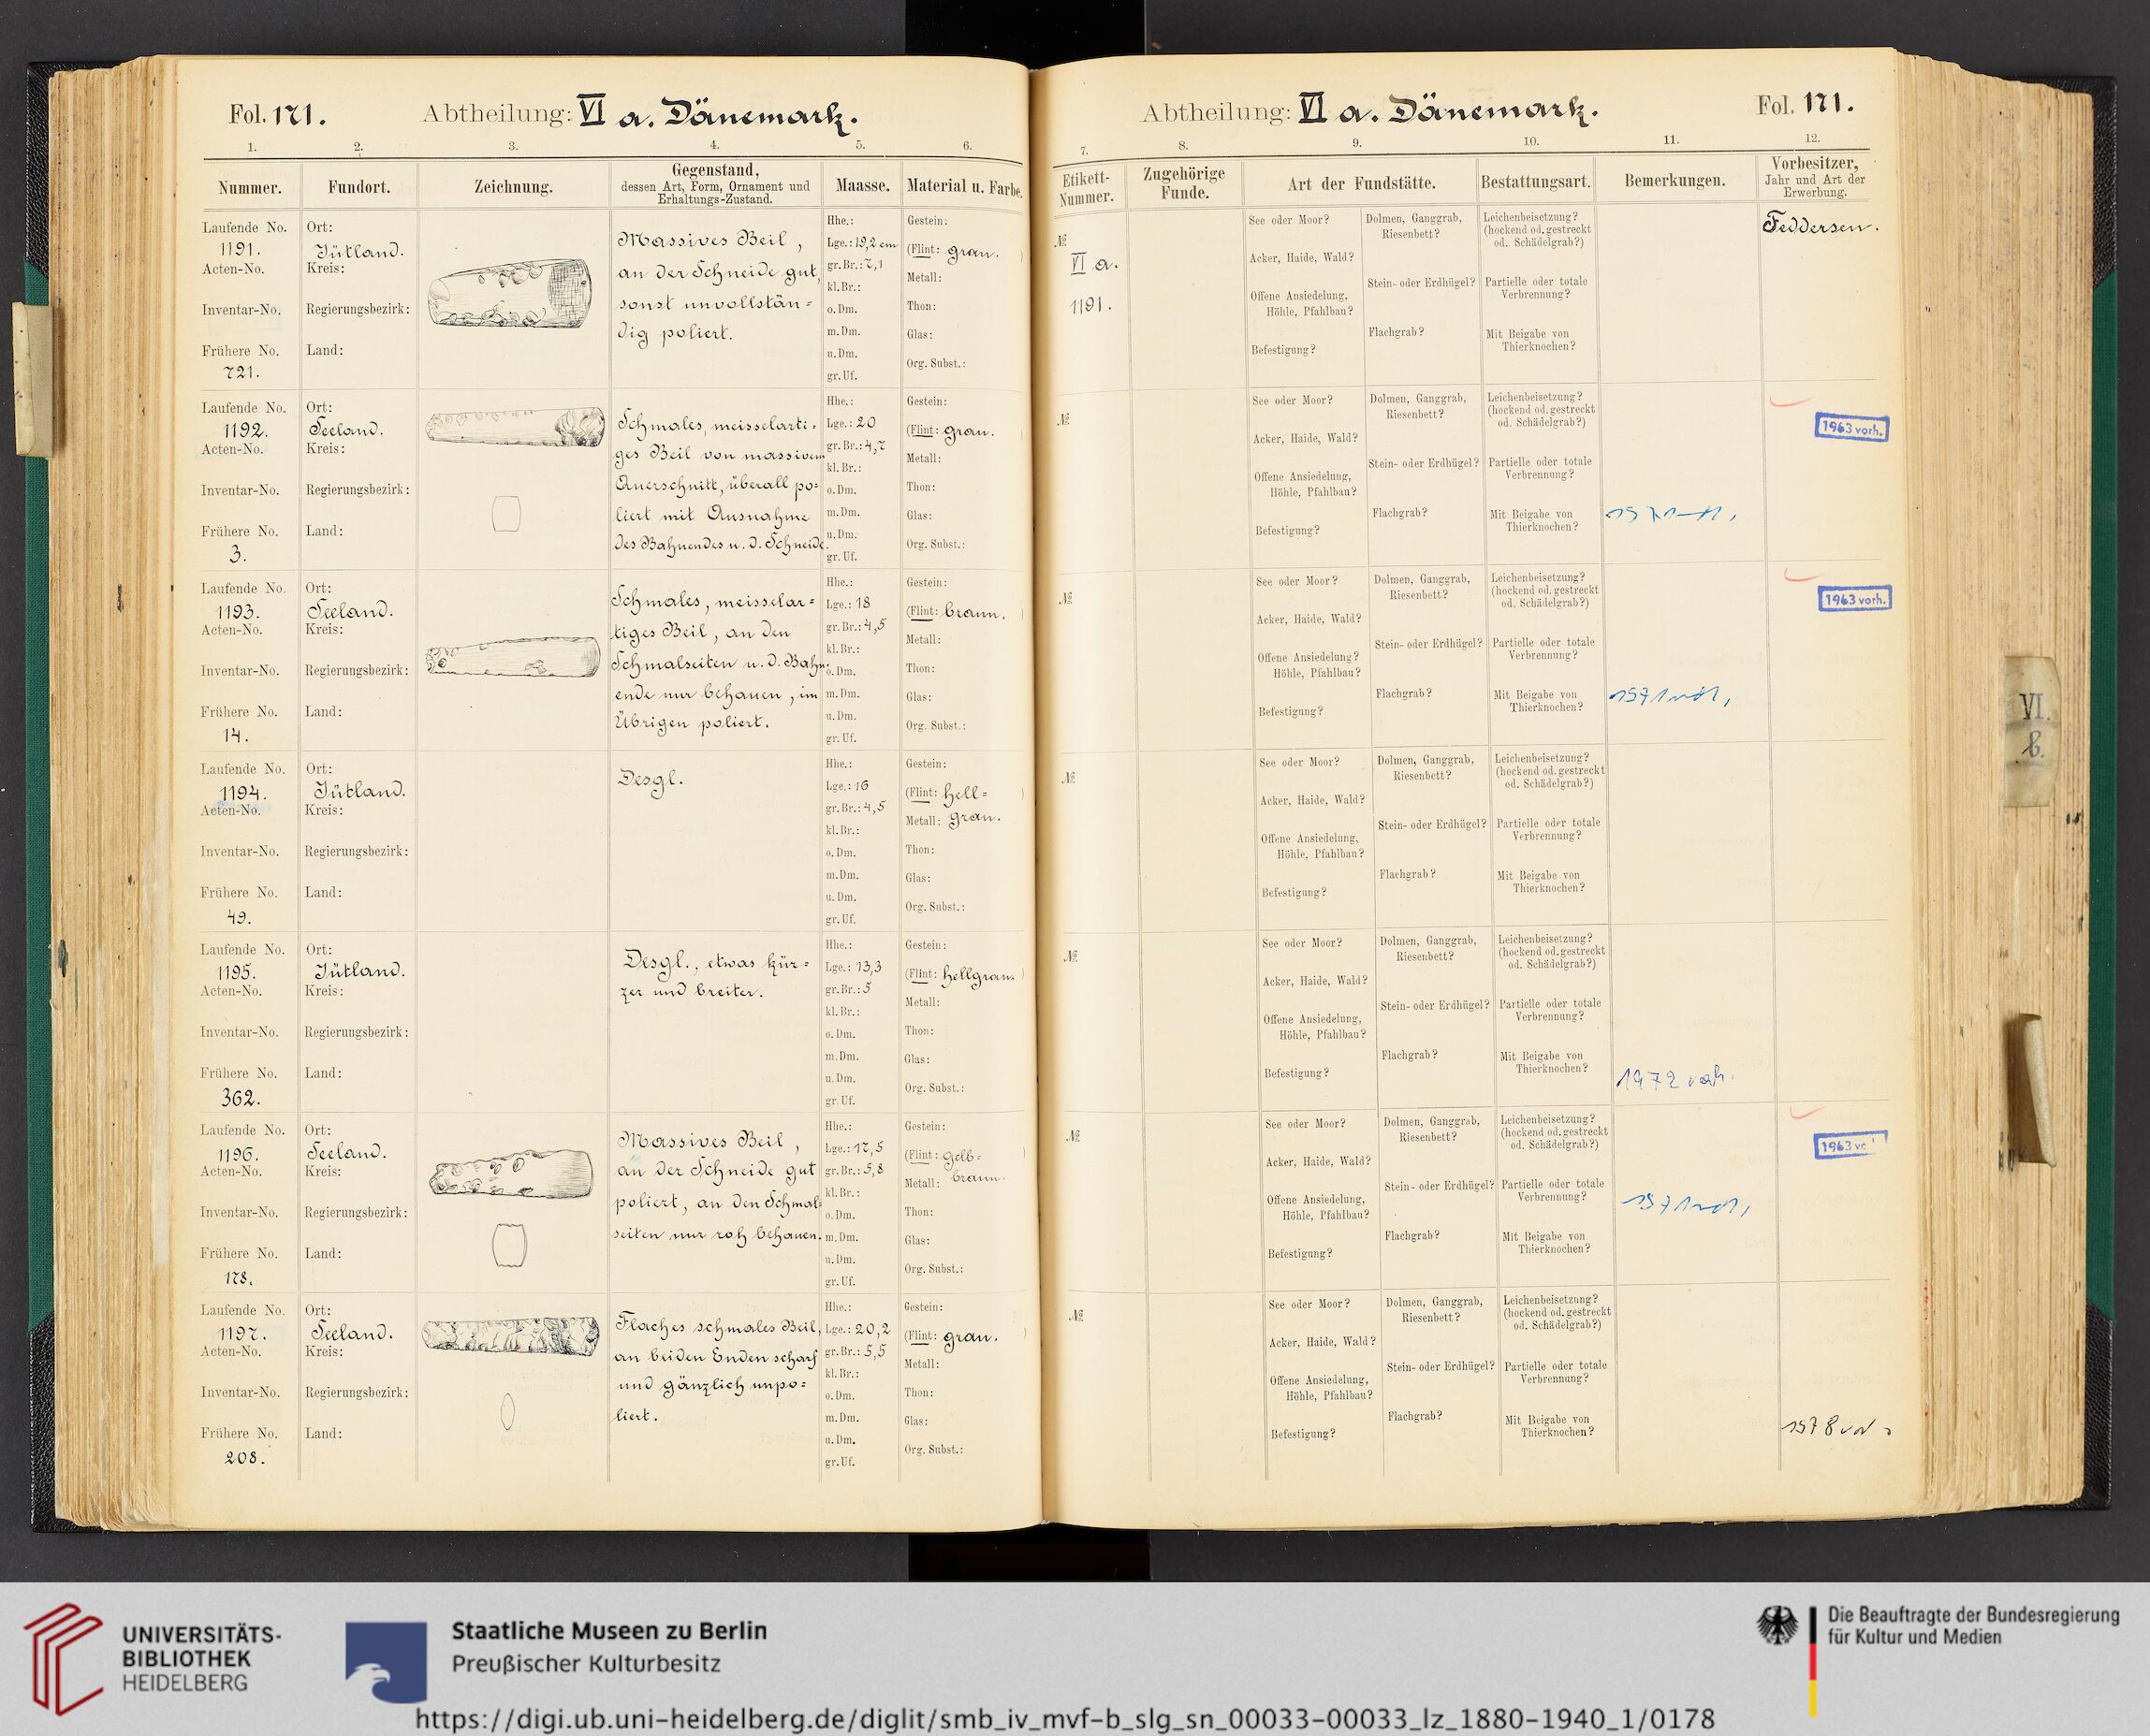 Fol. 171.
Abtheilung: VI a. Dänemark.
1. 2. 3. 4. 5. 6.
Nummer. Fundort. Zeichnung. Gegenstand, dessen Art, Form, Ornament und Erhaltungs-Zustand. Maasse. Material u. Farbe.
Laufende No.
1191.
Acten-No.
Inventar-No.
Frühere No.
721.
Ort:
Jütland.
Kreis:
Regierungsbezirk:
Land:
Massives Beil,
an der Schneide gut,
sonst unvollstän=
dig poliert.
Hhe.:
Lge.: 19,2 cm
gr. Br.: 7,1
kl. Br.:
o. Dm.
m. Dm.
u. Dm.
gr. Uf.
Gestein:
(Flint: grau. )
Metall:
Thon:
Glas:
Org. Subst.:
Laufende No.
1192.
Acten-No.
Inventar-No.
Frühere No.
3.
Ort:
Seeland.
Kreis:
Regierungsbezirk:
Land:
Schmales, meisselarti-
ges Beil von massivem
Querschnitt, überall po=
liert mit Ausnahme
des Bahnendes u. d. Schneide.
Hhe.:
Lge.: 20
gr. Br.: 4,7
kl. Br.:
o. Dm.
m. Dm.
u. Dm.
gr. Uf.
Gestein:
(Flint: grau.
Metall:
Thon:
Glas:
Org. Subst.:
Laufende No.
1193.
Acten-No.
Inventar-No.
Frühere No.
14.
Ort:
Seeland.
Kreis:
Regierungsbezirk:
Land:
Schmales, meisselar=
tiges Beil, an den
Schmalseiten u. d. Bahn-
ende nur behauen, im
Übrigen poliert.
Hhe.:
Lge.: 18
gr. Br.: 4,5
kl. Br.:
o. Dm.
m. Dm.
u. Dm.
gr. Uf.
Gestein:
(Flint: braun. )
Metall:
Thon:
Glas:
Org. Subst.:
Laufende No.
1194.
Acten-No.
Inventar-No.
Frühere No.
49.
Ort:
Jütland.
Kreis:
Regierungsbezirk:
Land:
Desgl.
Hhe.:
Lge.: 16
gr. Br.: 4,5
kl. Br.:
o. Dm.
m. Dm.
u. Dm.
gr. Uf.
Gestein:
(Flint: hell= )
Metall: grau.
Thon:
Glas:
Org. Subst.:
Laufende No.
1195.
Acten-No.
Inventar-No.
Frühere No.
362.
Ort:
Jütland.
Kreis:
Regierungsbezirk:
Land:
Desgl., etwas kür=
zer und breiter.
Hhe.:
Lge.: 13,3
gr. Br.: 5
kl. Br.:
o. Dm.
m. Dm.
u. Dm.
gr. Uf.
Gestein:
(Flint: hellgrau. )
Metall:
Thon:
Glas:
Org. Subst.:
Laufende No.
1196.
Acten-No.
Inventar-No.
Frühere No.
178.
Ort:
Seeland.
Kreis:
Regierungsbezirk:
Land:
Massives Beil,
an der Schneide gut
poliert, an den Schmal=
seiten nur roh behauen.
Hhe.:
Lge.: 17,5
gr. Br.: 5,8
kl. Br.:
o. Dm.
m. Dm.
u. Dm.
gr. Uf.
Gestein:
(Flint: gelb= )
Metall: braun.
Thon:
Glas:
Org. Subst.:
Laufende No.
1197.
Acten-No.
Inventar-No.
Frühere No.
208.
Ort:
Seeland.
Kreis:
Regierungsbezirk:
Land:
Flaches schmales Beil,
an beiden Enden scharf
und gänzlich unpo=
liert.
Hhe.:
Lge.: 20,2
gr. Br.: 5,5
kl. Br.:
o. Dm.
m. Dm.
u. Dm.
gr. Uf.
Gestein:
(Flint: grau. )
Metall:
Thon:
Glas:
Org. Subst.:
Abtheilung: VI a. Dänemark.
Fol. 171.
7. 8. 9. 10. 11. 12.
Etikett-Nummer. Zugehörige Funde. Art der Fundstätte. Bestattungsart. Bemerkungen. Vorbesitzer, Jahr und Art der Erwerbung.
№
VI a.
1191.
See oder Moor?
Acker, Haide, Wald?
Offene Ansiedelung,
Höhle, Pfahlbau?
Befestigung?
Dolmen, Ganggrab,
Riesenbett?
Stein- oder Erdhügel?
Flachgrab?
Leichenbeisetzung?
(hockend od. gestreckt
od. Schädelgrab?)
Partielle oder totale
Verbrennung?
Mit Beigabe von
Thierknochen?
Feddersen.
№
See oder Moor?
Acker, Haide, Wald?
Offene Ansiedelung,
Höhle, Pfahlbau?
Befestigung?
Dolmen, Ganggrab,
Riesenbett?
Stein- oder Erdhügel?
Flachgrab?
Leichenbeisetzung?
(hockend od. gestreckt
od. Schädelgrab?)
Partielle oder totale
Verbrennung?
Mit Beigabe von
Thierknochen?
1963 vorh.
№
See oder Moor?
Acker, Haide, Wald?
Offene Ansiedelung?
Höhle, Pfahlbau?
Befestigung?
Dolmen, Ganggrab,
Riesenbett?
Stein- oder Erdhügel?
Flachgrab?
Leichenbeisetzung?
(hockend od. gestreckt
od. Schädelgrab?)
Partielle oder totale
Verbrennung?
Mit Beigabe von
Thierknochen?
1963 vorh.
№
See oder Moor?
Acker, Haide, Wald?
Offene Ansiedelung,
Höhle, Pfahlbau?
Befestigung?
Dolmen, Ganggrab,
Riesenbett?
Stein- oder Erdhügel?
Flachgrab?
Leichenbeisetzung?
(hockend od. gestreckt
od. Schädelgrab?)
Partielle oder totale
Verbrennung?
Mit Beigabe von
Thierknochen?
№
See oder Moor?
Acker, Haide, Wald?
Offene Ansiedelung,
Höhle, Pfahlbau?
Befestigung?
Dolmen, Ganggrab,
Riesenbett?
Stein- oder Erdhügel?
Flachgrab?
Leichenbeisetzung?
(hockend od. gestreckt
od. Schädelgrab?)
Partielle oder totale
Verbrennung?
Mit Beigabe von
Thierknochen?
1972 vorh.
№
See oder Moor?
Acker, Haide, Wald?
Offene Ansiedelung,
Höhle, Pfahlbau?
Befestigung?
Dolmen, Ganggrab,
Riesenbett?
Stein- oder Erdhügel?
Flachgrab?
Leichenbeisetzung?
(hockend od. gestreckt
od. Schädelgrab?)
Partielle oder totale
Verbrennung?
Mit Beigabe von
Thierknochen?
1963
№
See oder Moor?
Acker, Haide, Wald?
Offene Ansiedelung,
Höhle, Pfahlbau?
Befestigung?
Dolmen, Ganggrab,
Riesenbett?
Stein- oder Erdhügel?
Flachgrab?
Leichenbeisetzung?
(hockend od. gestreckt
od. Schädelgrab?)
Partielle oder totale
Verbrennung?
Mit Beigabe von
Thierknochen?
VI.
b.
UNIVERSITÄTS-
BIBLIOTHEK
HEIDELBERG
Staatliche Museen zu Berlin
Preußischer Kulturbesitz
Die Beauftragte der Bundesregierung
für Kultur und Medien
https://digi.ub.uni-heidelberg.de/diglit/smb_iv_mvf-b_slg_sn_00033-00033_lz_1880-1940_1/0178